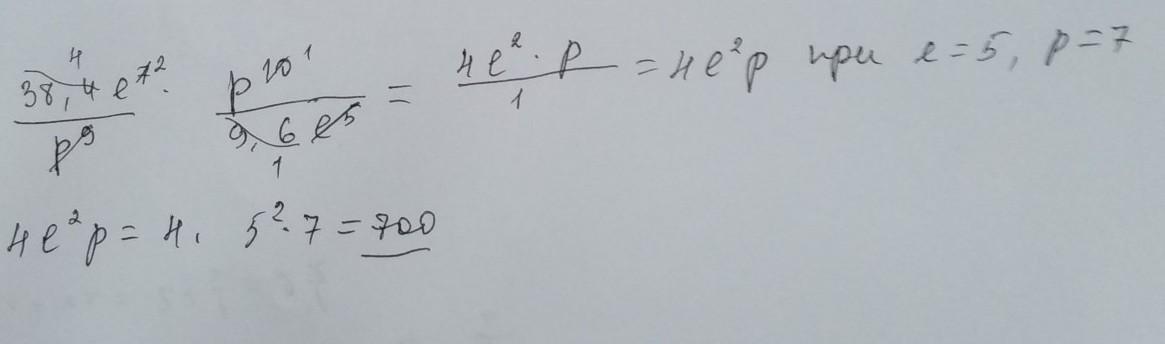 38,4 e⁷ ² · / p⁹ · p¹⁰ ¹ / 9,6 e⁵ = 4e² · p / 1 = 4e²p при e=5, p=7
4 1
4e²p = 4 · 5² · 7 = 700